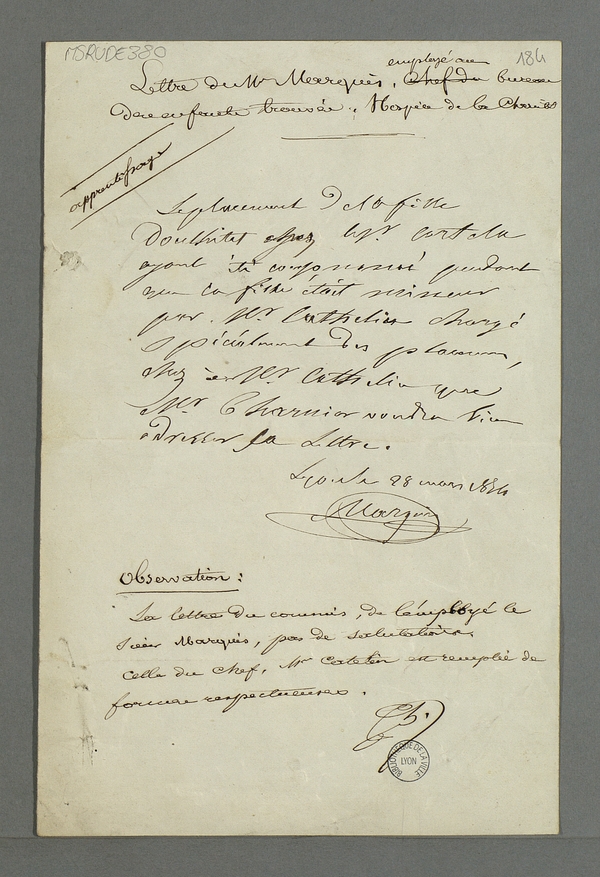 MSRUDE380
184
employé au
Lettre du Mr Marquis, chef du bureau
des enfants trouvés, Hospice de la Charité
apprentissage
Le placement de la fille
chez Mr
ayant été pendant
que la fille était
par Mr Cathelin chargé
spécialement des placements,
c'est à Mr Cathelin que
Mr Charnier voudra bien
adresser sa lettre.
Lyon le 28 mars 1834
Marquis
Observation :
La lettre du commis, de l'employé le
sieur Marquis, pas de salutations.
Celle du chef, Mr Catelin est remplie de
formes respectueuses.
Ch.
BIBLIOTHEQUE DE LA VILLE
LYON